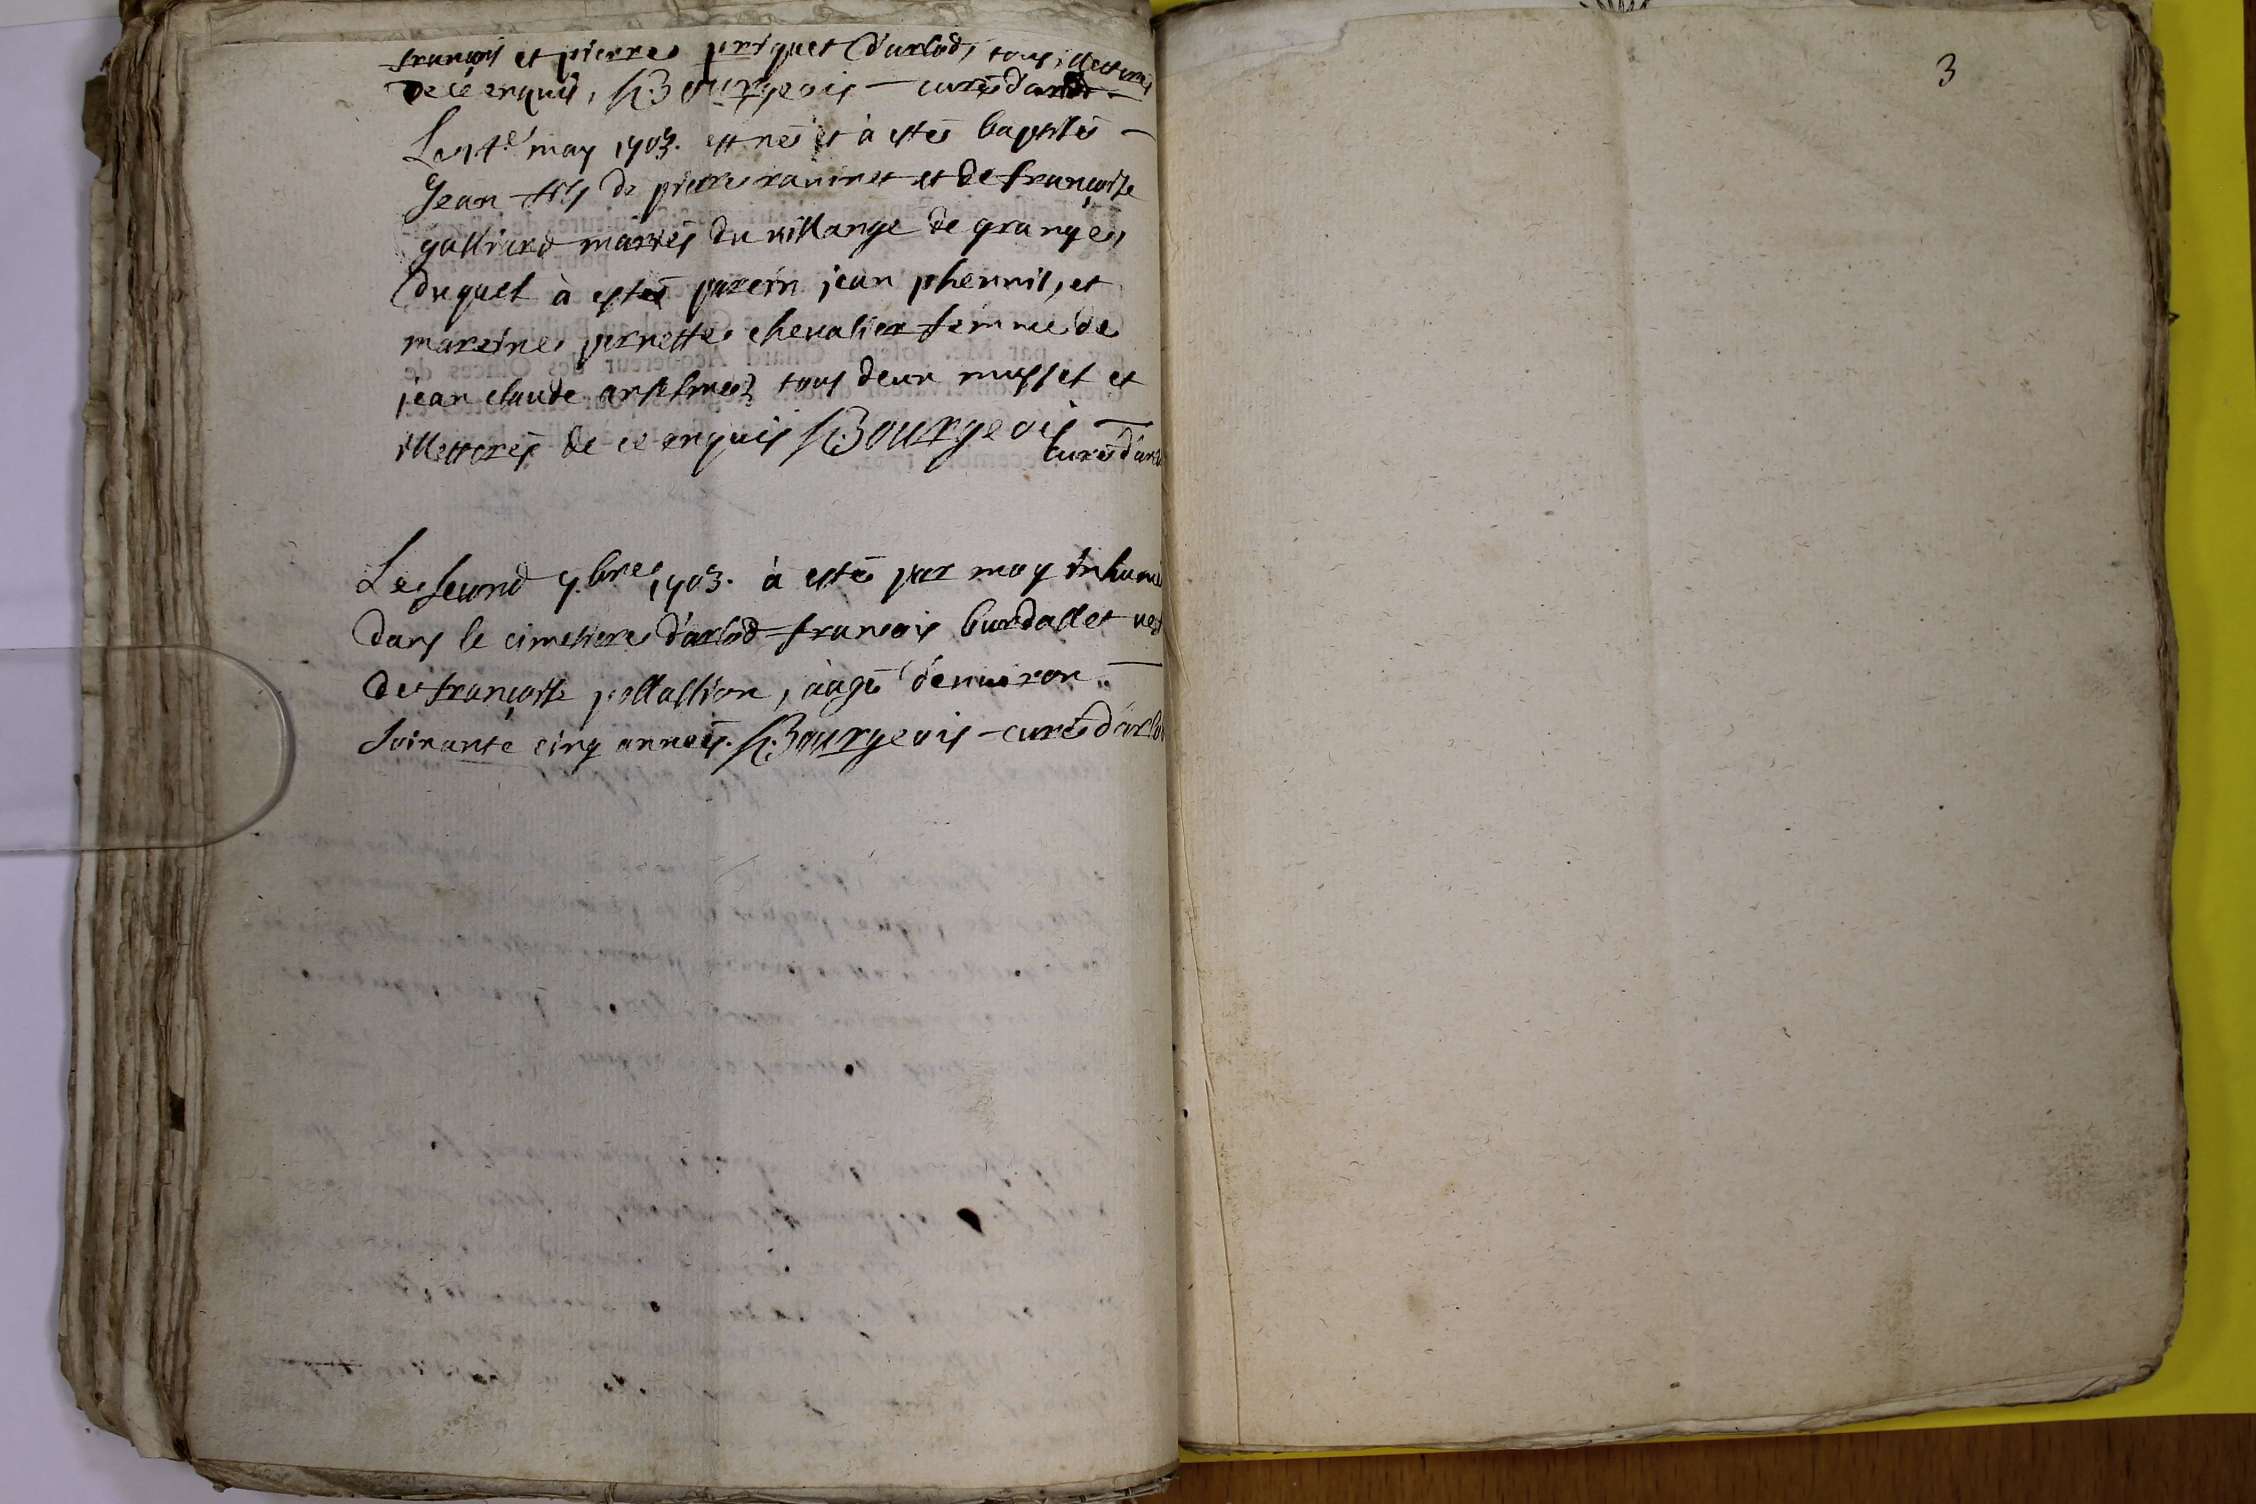 françois et pierre priquet d'arlod, tous illettrés
de ce enquis, Bourgeois – curé d'arlod –
Le 1er may 1703. est né et à esté baptisé –
Jean fils de pierre raninet et de françoise
galliard mariés du village de granges,
duquel à esté parein jean phennil, et
mareine pernette chevalier femme de
jean claude anselmez tous deux mussel et
illettrés de ce enquis Bourgeois –
curé d'arlod
Le second 7.bre 1703. à esté par moy inhumé
dans le cimetiere d'arlod francois burdallet
de françoise pellassion, àagé d'environ –
soixante cinq années. Bourgeois – curé d'arlod
3